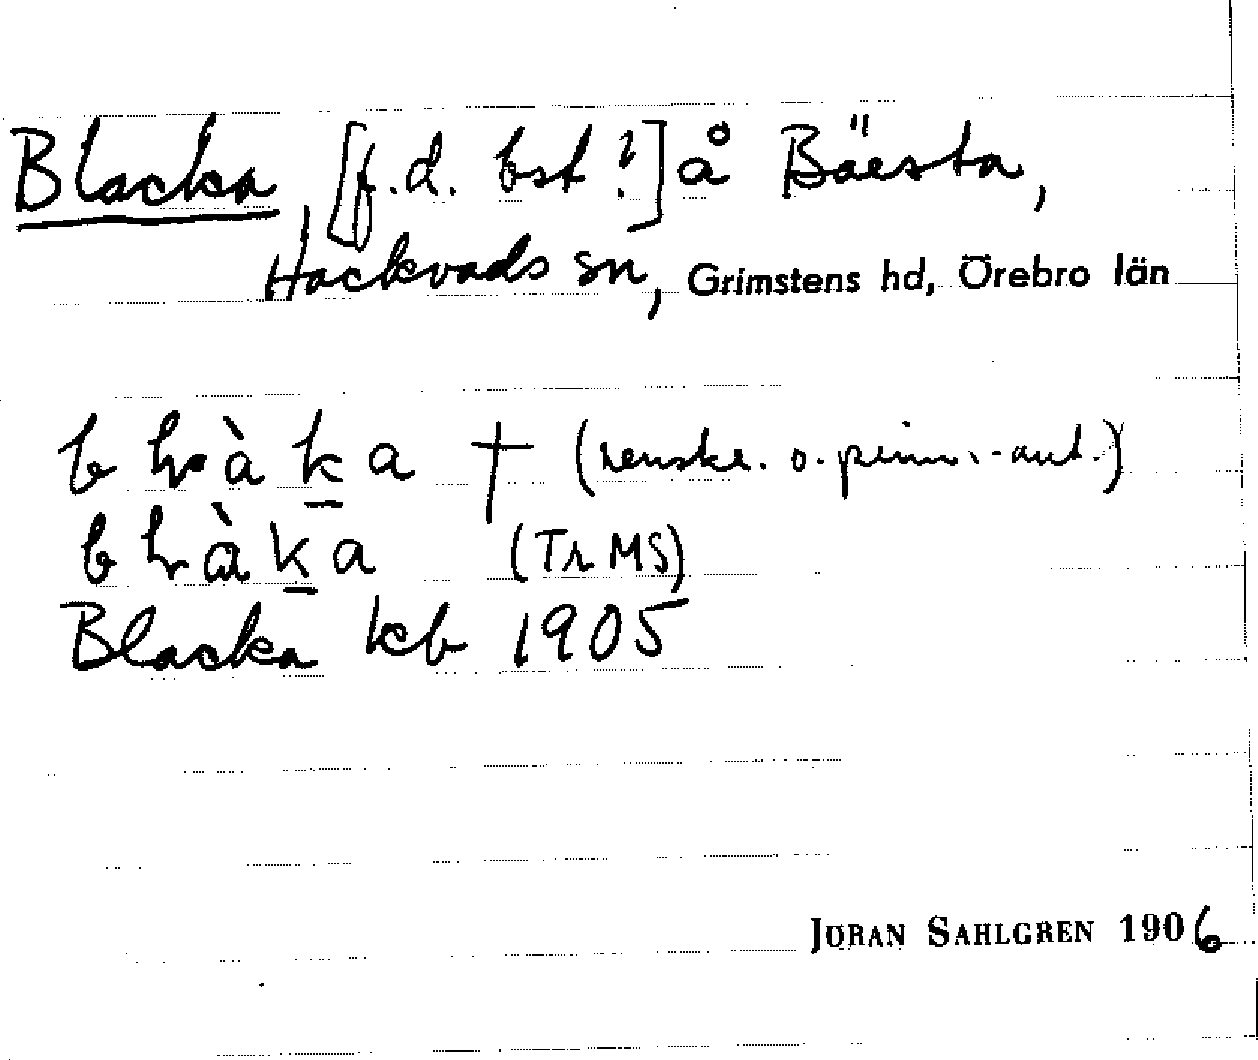 Blacka, [f.d. bst?] å Bäesta,
Hackvads sn, Grimstens hd, Örebro län
b à k a † (renskr. o. prim.-ant.)
b à k a (Tr MS)
Blacka kb 1905
JÖRAN SAHLGREN 1906